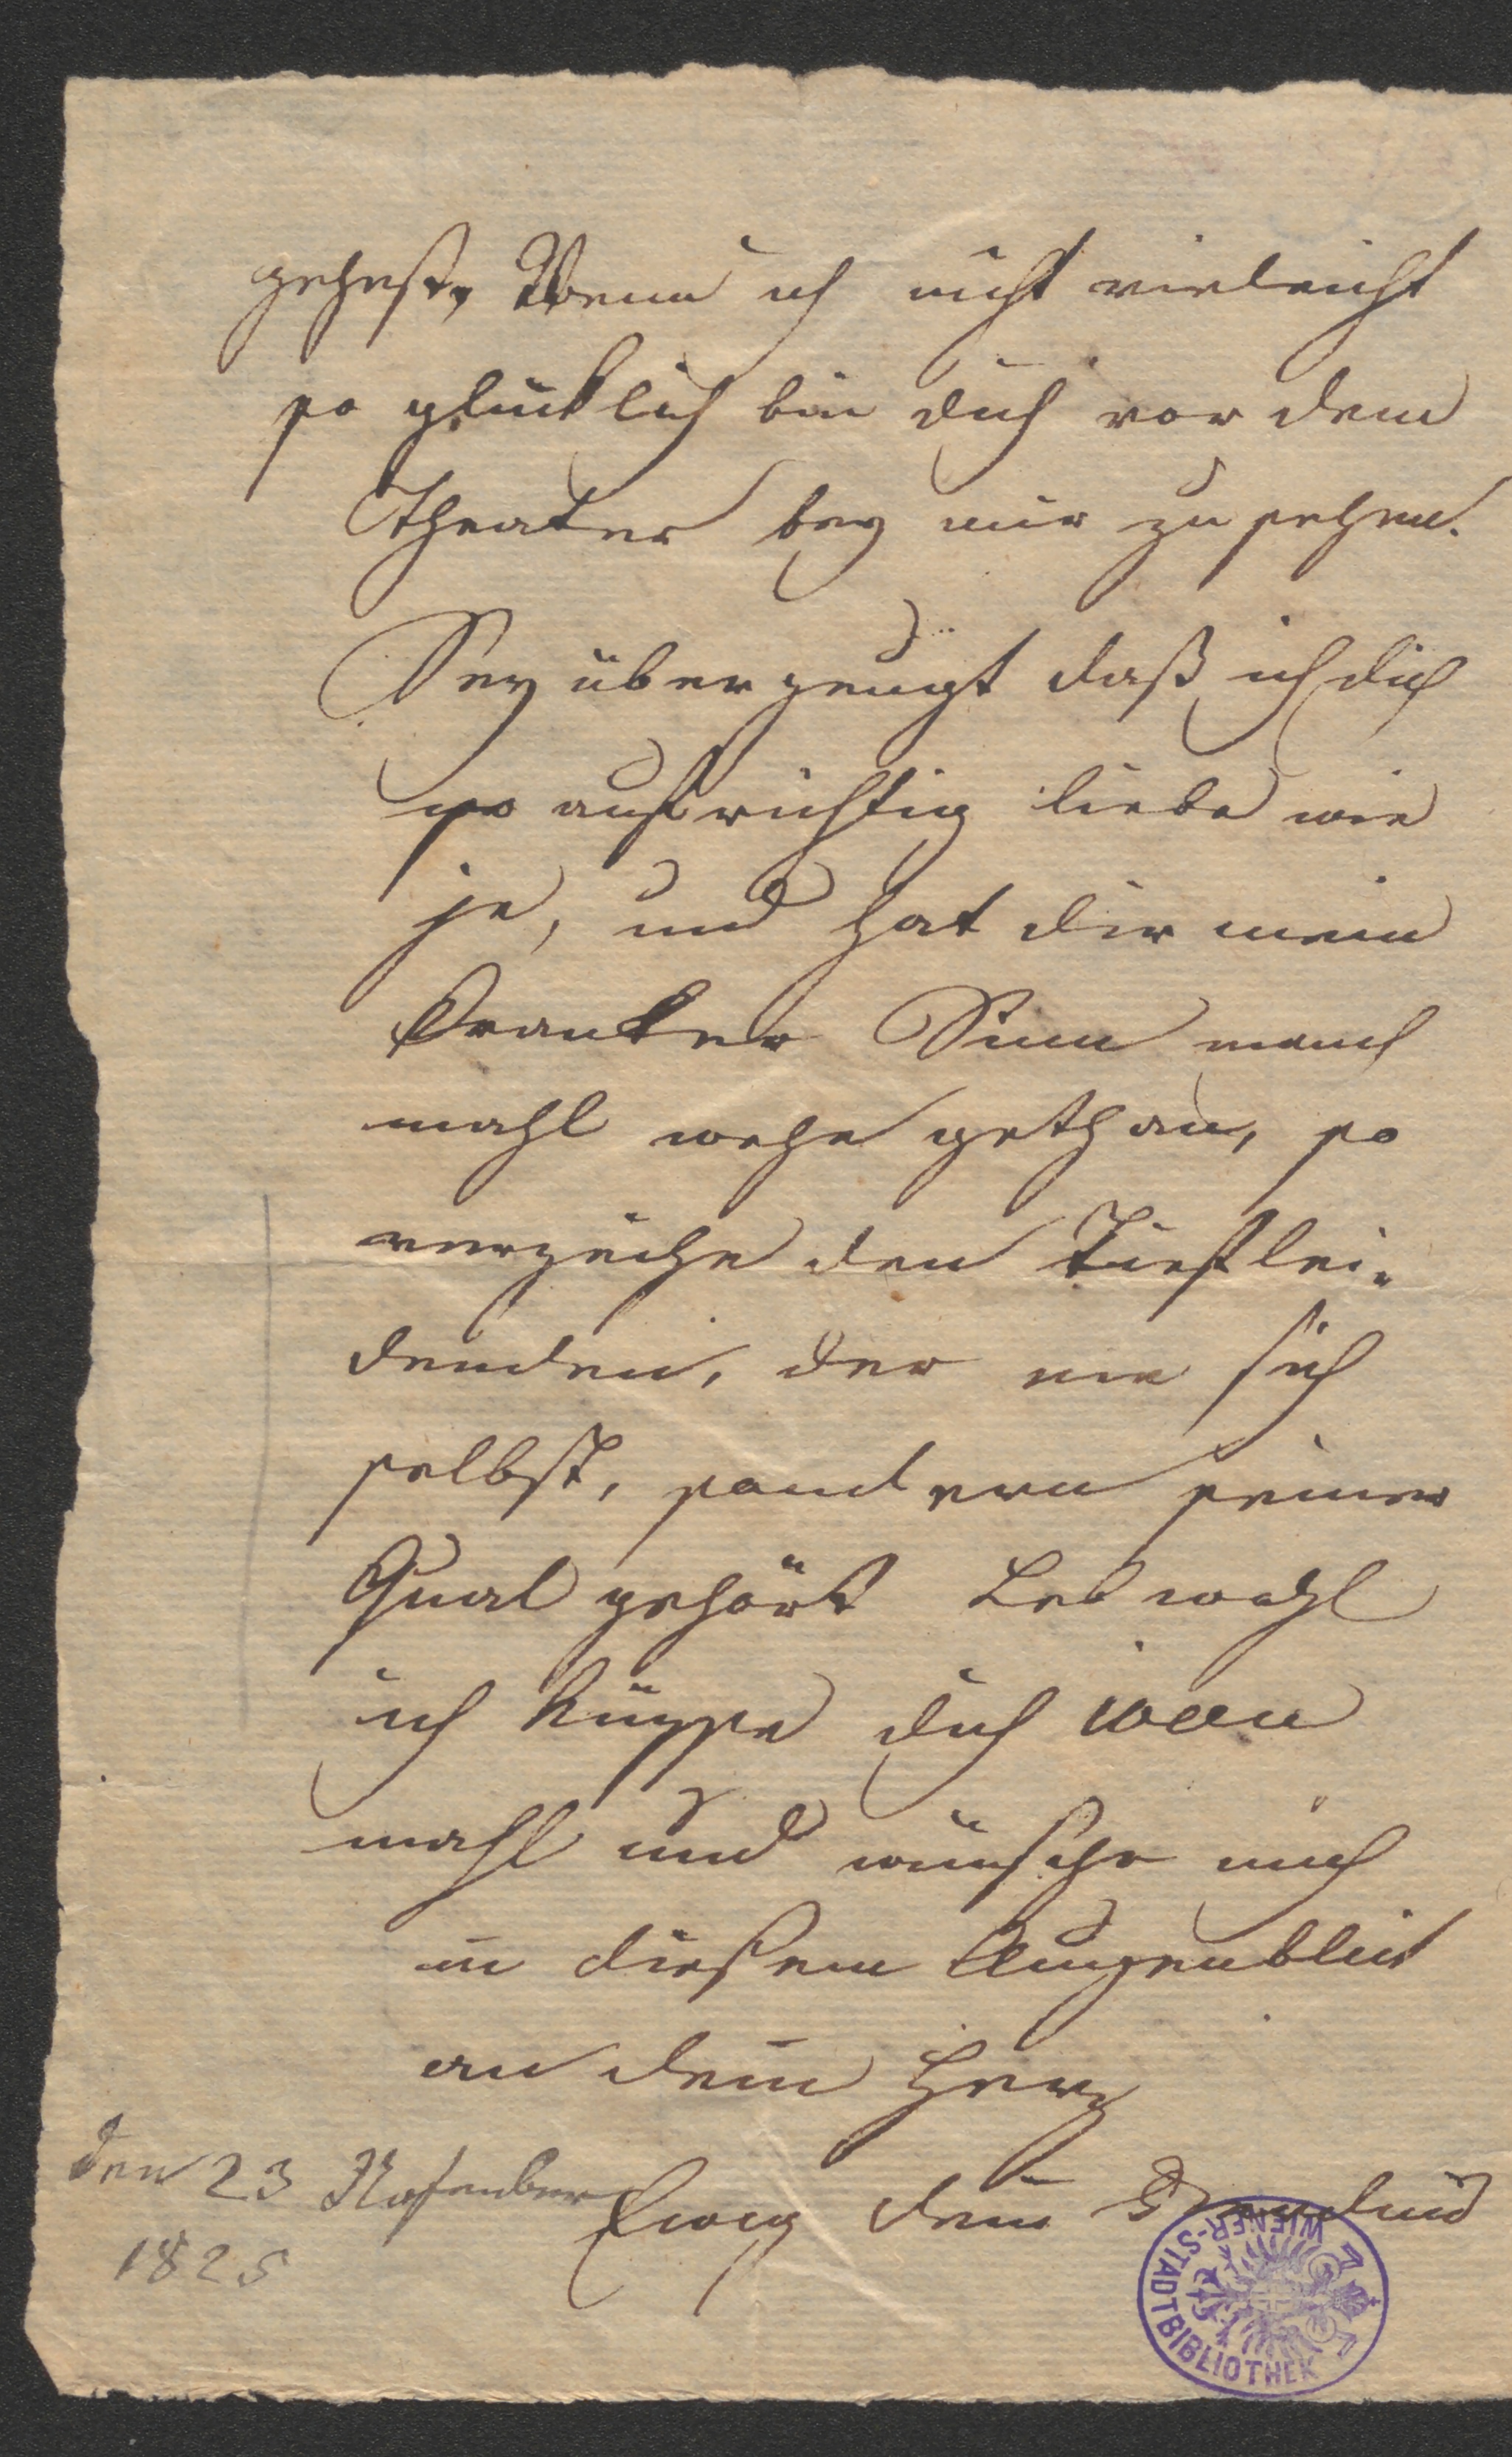 gehest, Wenn ich nicht vieleicht
so glücklich bin dich vor dem
Theater bey mir zu sehen.
Sey überzeugt daß ich dich
so aufrichtig liebe wie
je, und hat dir mein
kranker Sinn manch
mahl wehe gethan, so
verzeihe den Tieflei-
denden, der nie sich
selbst, sondern seiner
Qual gehört Leb wohl
ich küsse dich 1000
mahl und wünsche mich
in diesem Augenblick
an dein Herz
Ewig dein Ferdinand
den 23 Nofember
1825
WIENER-STADTBIBLIOTHEK